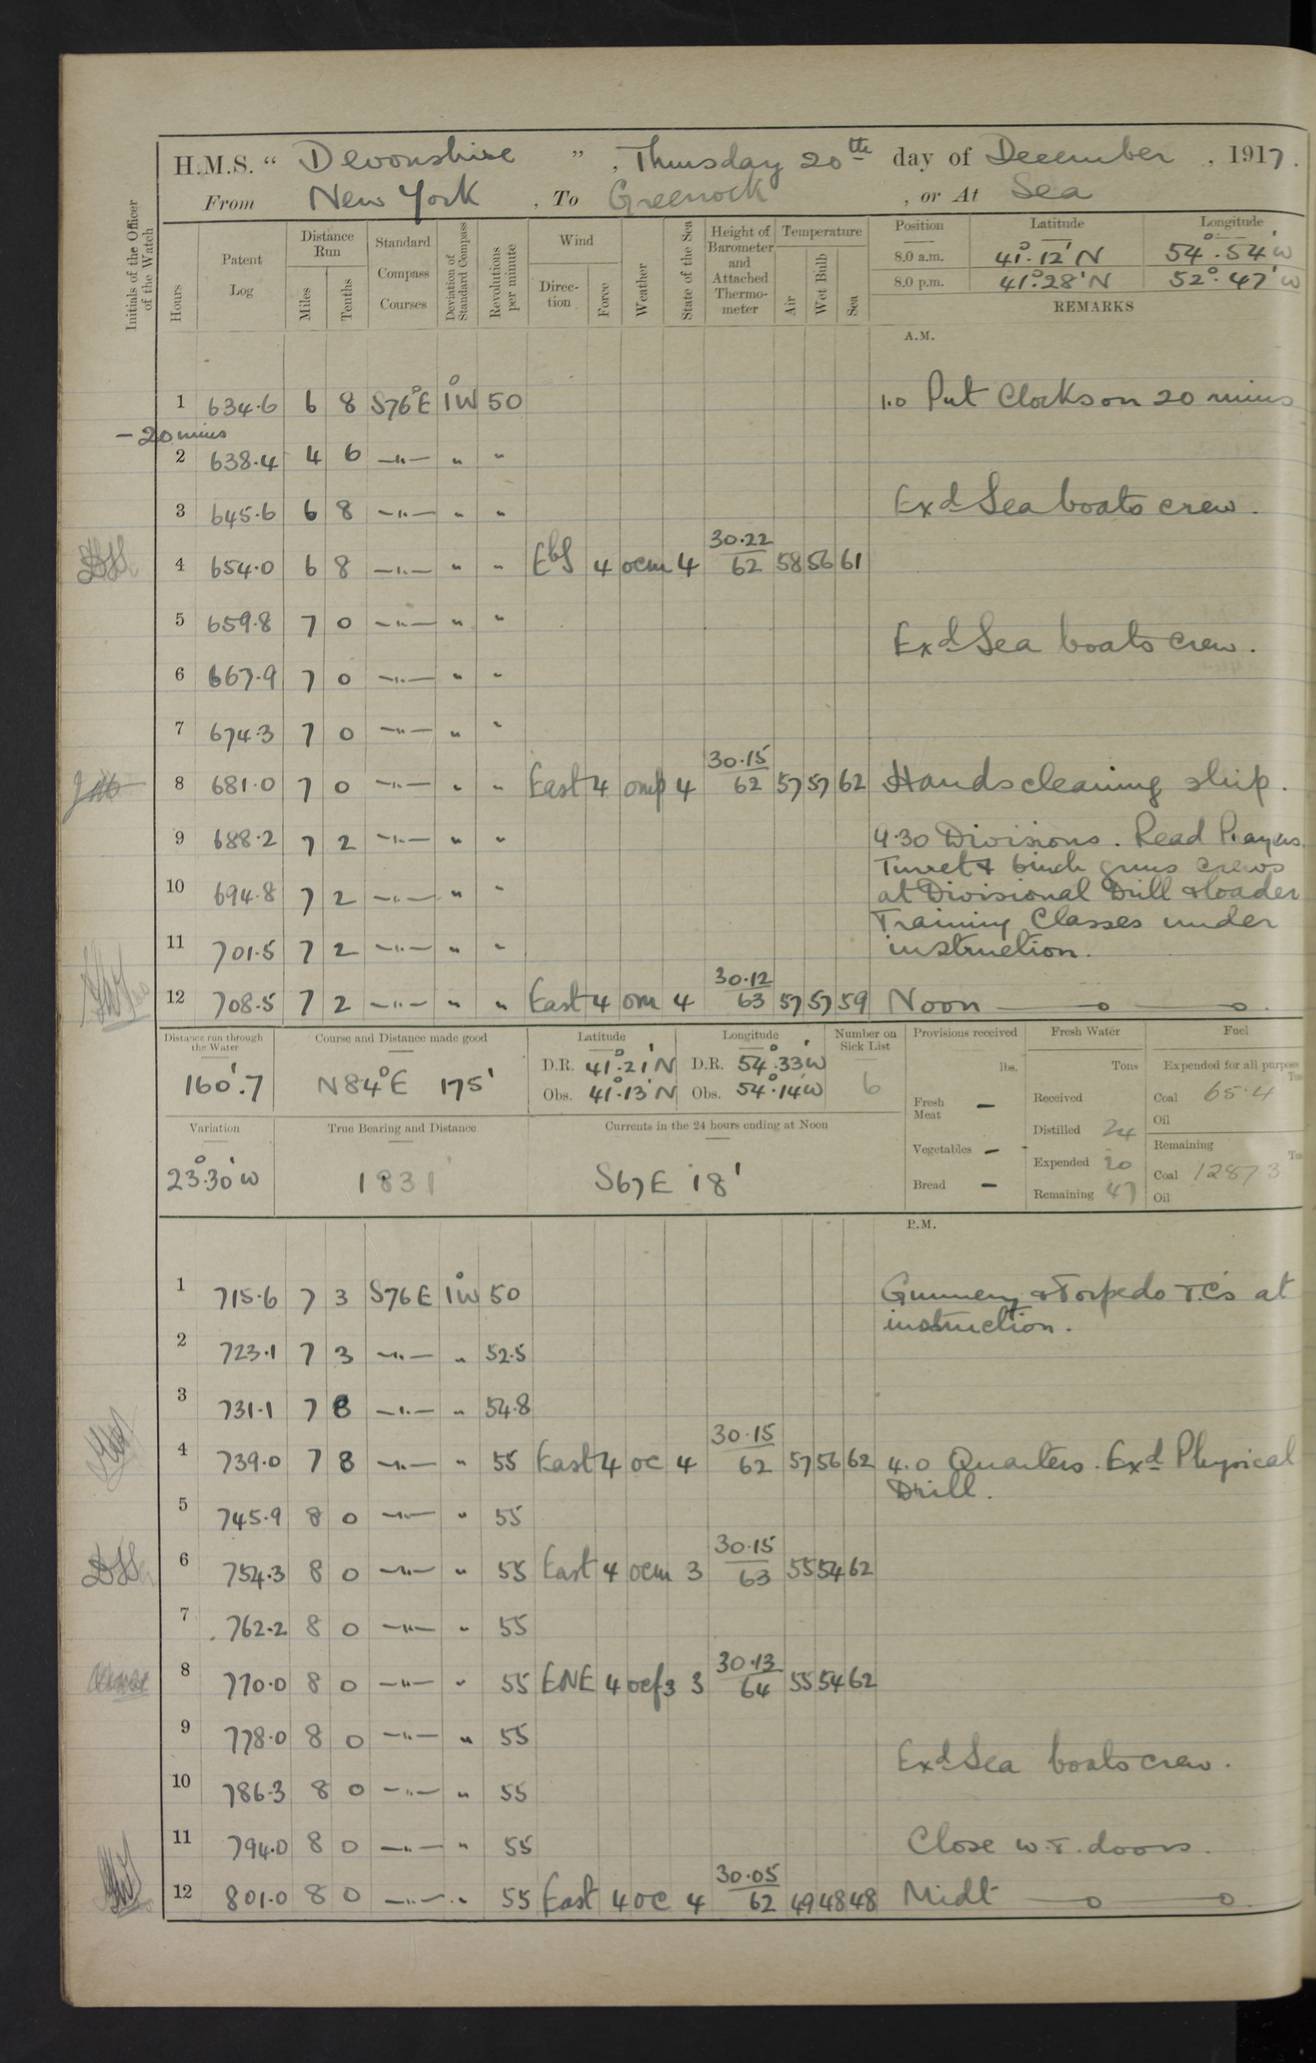 H.M.S. “ Devonshire ” , Thursday 20th day of December , 1917.
From New York , To Greenock , or At Sea
Initials of the Officer of the Watch
Hours
Patent Log
Distance Run
Miles Tenths
Standard Compass Courses
Deviation of Standard Compass
Revolutions per minute
Wind
Direction Force
Weather
State of the Sea
Height of Barometer and Attached Thermometer
Temperature
Air Wet Bulb Sea
Position Latitude Longitude
8.0 a.m. 41°.12'N 54°.54'W
8.0 p.m. 41°.28'N 52°.47'W
REMARKS
A.M.
1 634.6 6 8 S76°E 1°W 50 1.0 Put Clocks on 20 mins
-20 mins
2 638.4 4 6 —"— " "
3 645.6 6 8 —"— " " Exd Sea boats crew.
4 654.0 6 8 —"— " " EbS 4 ocm 4 30.22/62 58 56 61
5 659.8 7 0 —"— " "
Exd Sea boats crew.
6 667.9 7 0 —"— " "
7 674.3 7 0 —"— " "
8 681.0 7 0 —"— " " East 4 omp 4 30.15/62 57 57 62 Hands cleaning ship.
9 688.2 7 2 —"— " " 9.30 Divisions. Read Prayers.
Turret & 6 inch guns crews
10 694.8 7 2 —"— " " at Divisional Drill & loader
Training Classes under
11 701.5 7 2 —"— " " instruction.
12 708.5 7 2 —"— " " East 4 om 4 30.12/63 57 57 59 Noon —o—o
Distance run through the Water
160'.7
Course and Distance made good
N84°E 175'
Latitude
D.R. 41°.21'N
Obs. 41°.13'N
Longitude
D.R. 54°.33'W
Obs. 54°.14'W
Number on Sick List
6
Provisions received
lbs.
Fresh Meat —
Vegetables —
Bread —
Fresh Water
Tons
Received
Distilled 24
Expended 20
Remaining 47
Fuel
Expended for all purpose
Coal 65.4
Oil
Remaining
Coal 12873
Oil
Variation
23°.30'W
True Bearing and Distance
1831'
Currents in the 24 hours ending at Noon
S67E 18'
P.M.
1 715.6 7 3 S76E 1°W 50 Gunnery & Torpedo T.C's at
instruction.
2 723.1 7 3 —"— " 52.5
3 731.1 7 8 —"— " 54.8
4 739.0 7 8 —"— " 55 East 4 oc 4 30.15/62 57 56 62 4.0 Quarters. Exd Physical
Drill.
5 745.9 8 0 —"— " 55
6 754.3 8 0 —"— " 55 East 4 ocm 3 30.15/63 55 54 62
7 762.2 8 0 —"— " 55
8 770.0 8 0 —"— " 55 ENE 4 ocf3 3 30.13/64 55 54 62
9 778.0 8 0 —"— " 55
Exd Sea boats crew.
10 786.3 8 0 —"— " 55
11 794.0 8 0 —"— " 55 Close w.t. doors.
12 801.0 8 0 —"— " 55 East 4 oc 4 30.05/62 49 48 48 Midt —o—o